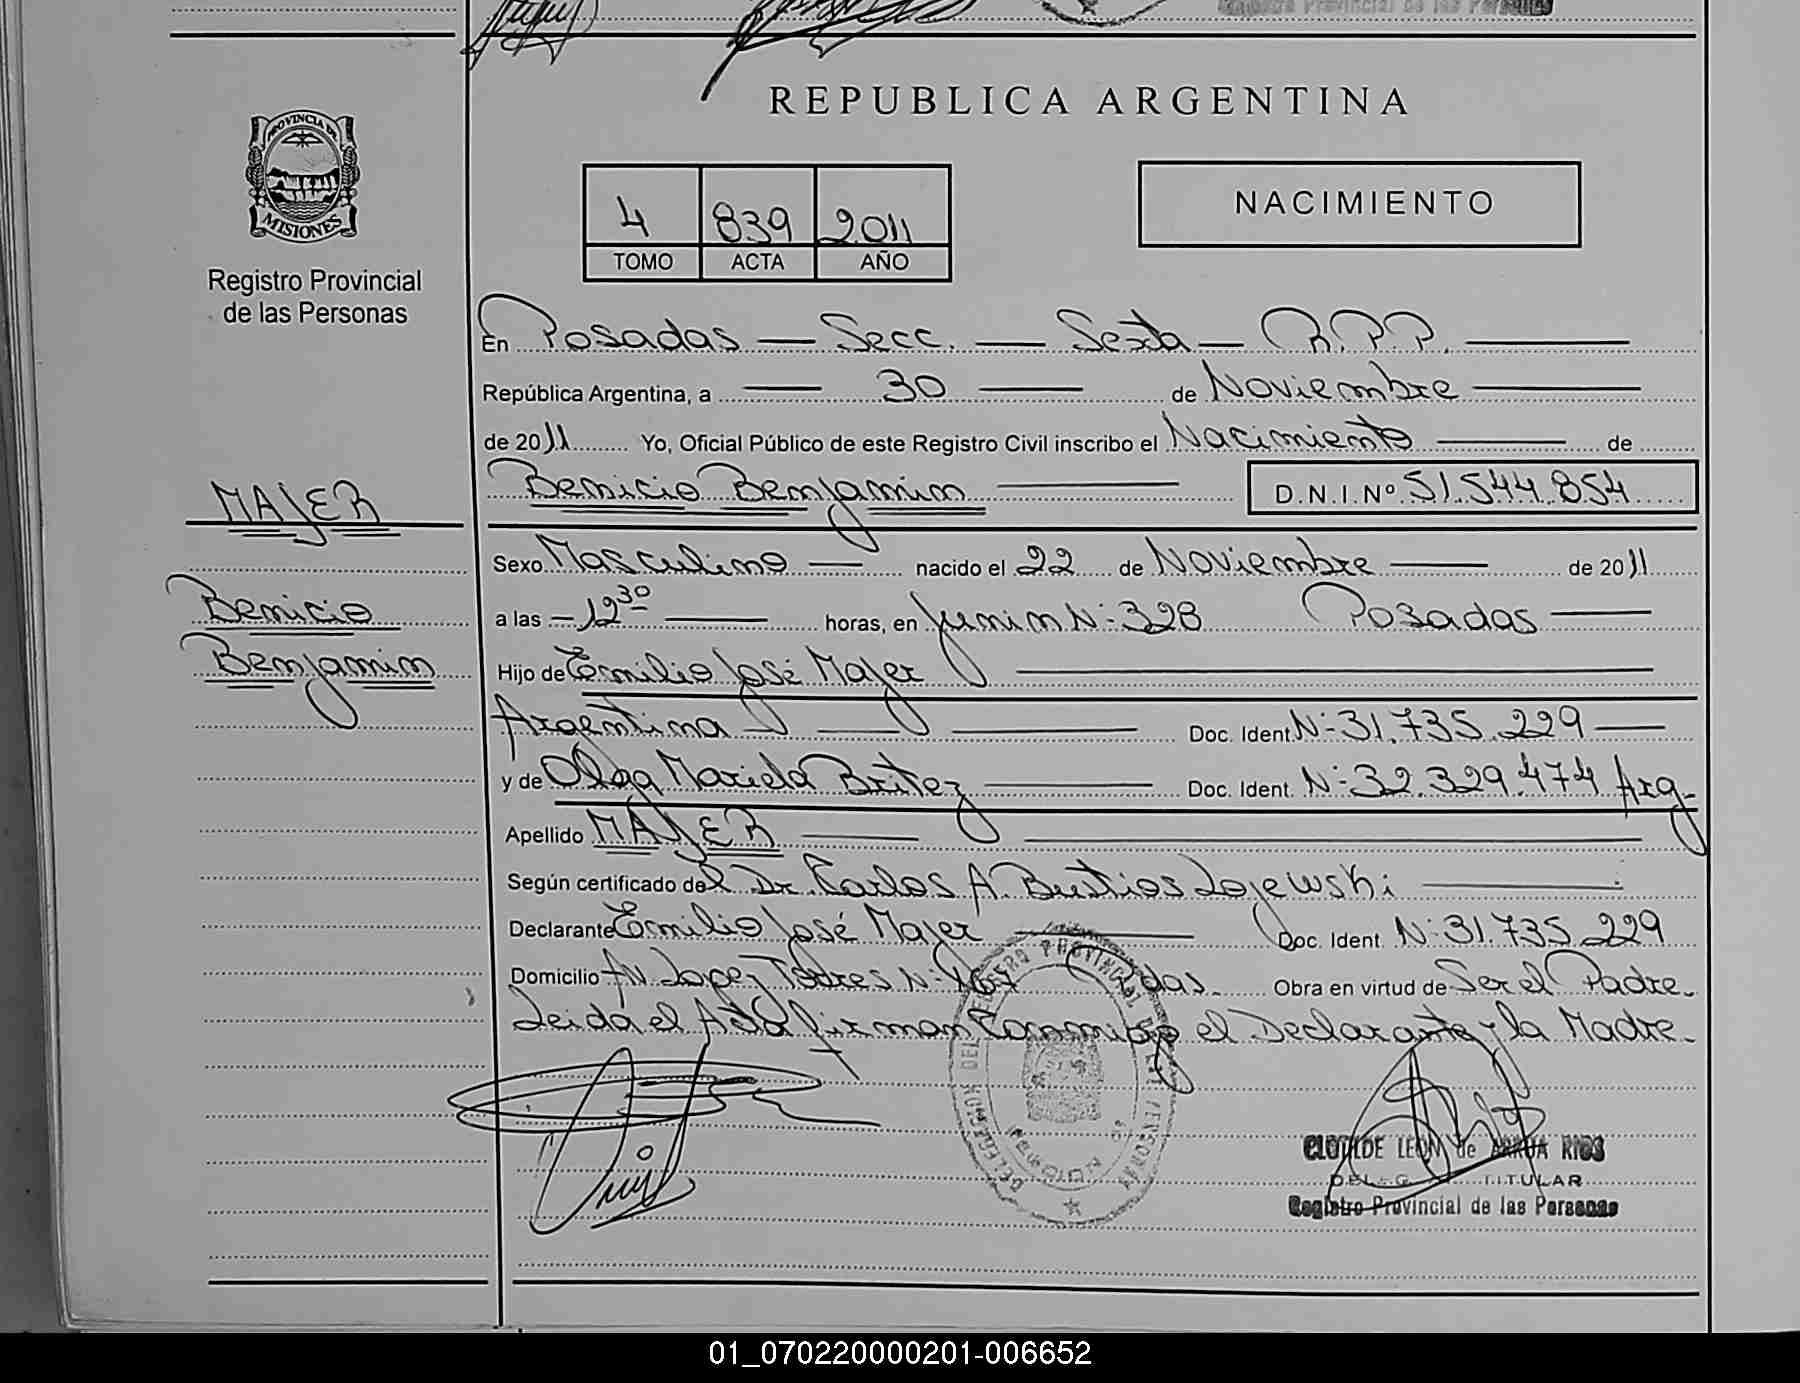 Registro Provincial de las Personas
REPUBLICA ARGENTINA
PROVINCIA DE
MISIONES
Registro Provincial
de las Personas
4 839 2011
TOMO ACTA AÑO
NACIMIENTO
En Posadas — Secc. — Sexta — R.P.P. —
República Argentina, a — 30 — de Noviembre —
de 2011 Yo, Oficial Público de este Registro Civil inscribo el Nacimiento — de
Benicio Benjamin — D.N.I.Nº 51.544.854
MAJER
Benicio
Benjamin
Sexo Masculino — nacido el 22 de Noviembre — de 2011
a las — 12 30 — horas, en Junin Nº 328 Posadas —
Hijo de Emilio José Majer —
Argentina — Doc. Ident. Nº 31.735.229 —
y de Olga Mariela Britez — Doc. Ident. Nº 32.329.474 Arg.
Apellido MAJER —
Según certificado del Dr. Carlos A. Bustios Lojewski —
Declarante Emilio José Majer — Doc. Ident. Nº 31.735.229
Domicilio Av. Lopez Torres Nº Pdas. Obra en virtud de Ser el Padre.
Leida el Acta firman Conmigo el Declarante y la Madre.
CLOTILDE LEON de ARRUA RIOS
TITULAR
Registro Provincial de las Personas
01_070220000201-006652